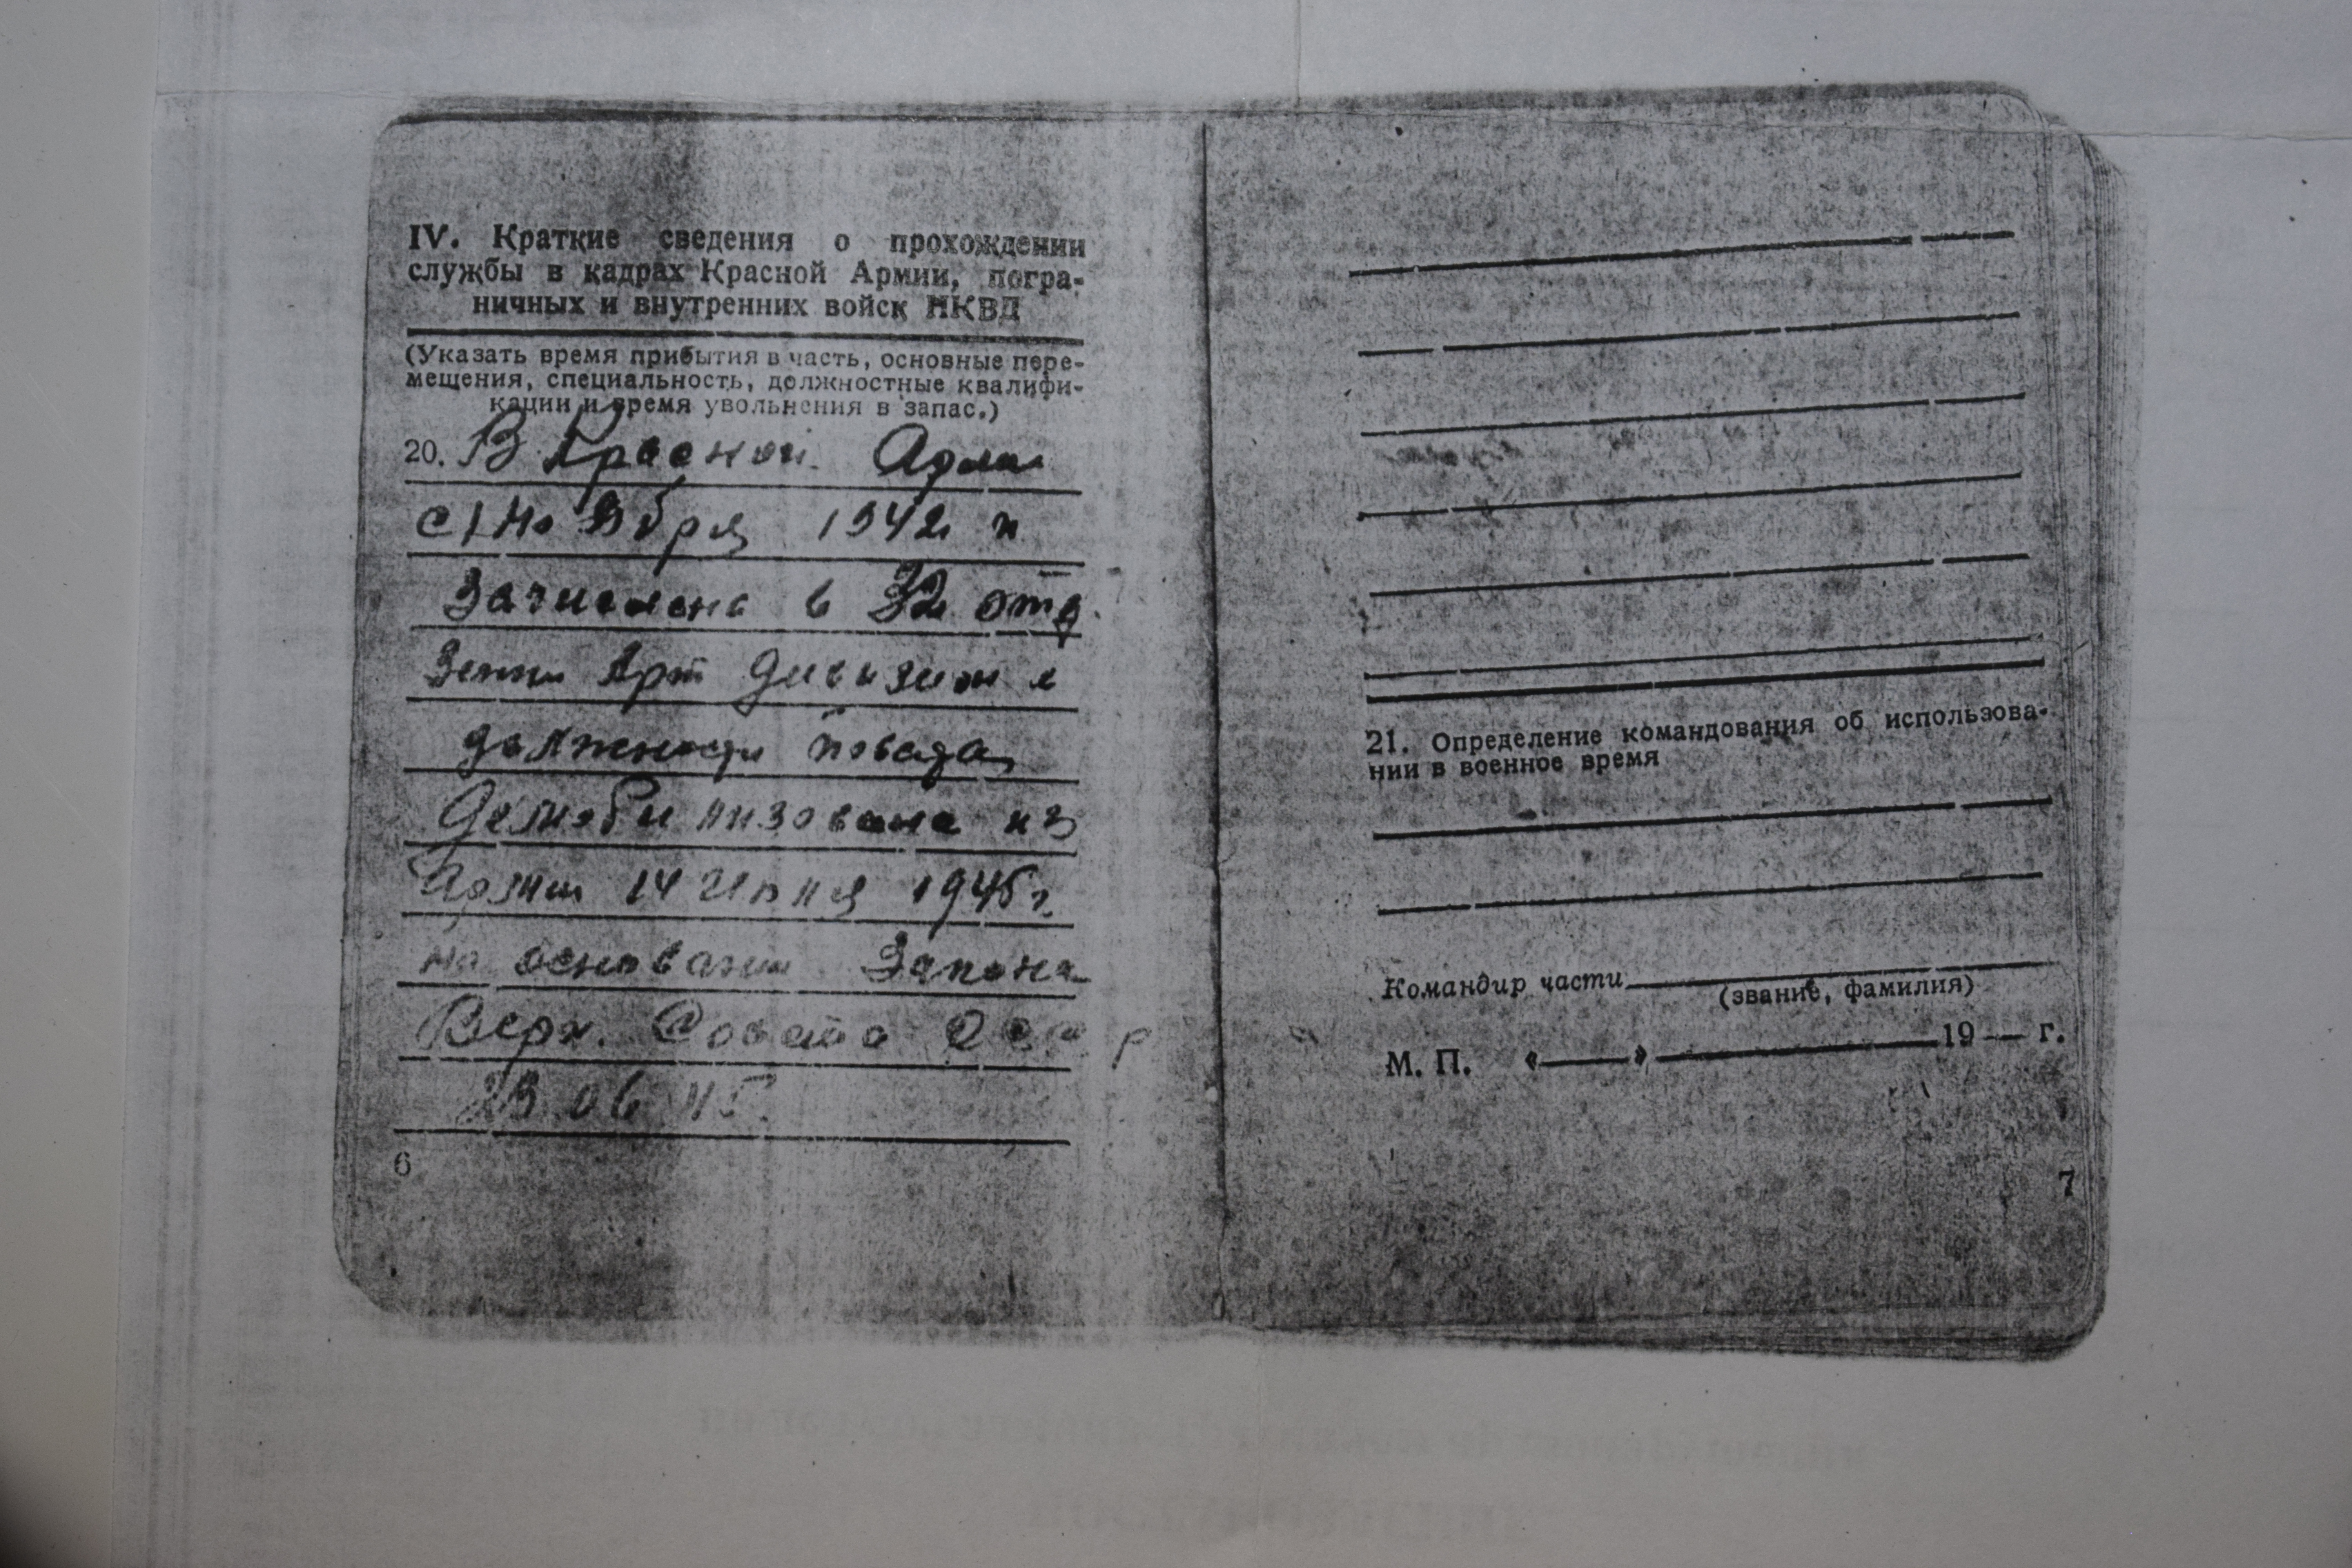 IV. Краткие сведения о прохождении
службы в кадрах Красной Армии, погра-
ничных и внутренних войск НКВД
(Указать время прибытия в часть, основные пере-
мещения, специальность, должностные квалифи-
кации и время увольнения в запас.)
20. В Красной Арми
с 1 Ноября 1942 г
Зачислена в 32 отд
Зенит Арт Дивизион в
должности повара
Демобилизована из
Армии 14 Июля 1945 г.
на основании Закона
Верх. Совета СССР
23 06 45
6
21. Определение командования об использова-
нии в военное время
Командир части
(звание, фамилия)
М. П. « » 19 — г.
7